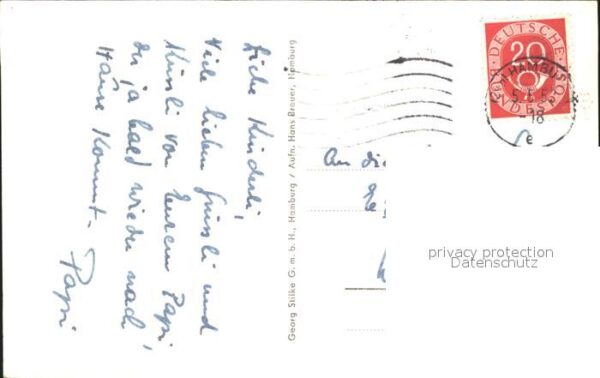 Liebe Kinderli,
Viele lieben Grüssli und
Müsli von Eurem Papi,
der ja bald wieder nach
Hause kommt.
Papi
Georg Stilke G.m.b.H., Hamburg / Aufn. Hans Breuer, Hamburg
An die
DEUTSCHE BUNDESPOST
20
HAMBURG
-18
e
privacy protection
Datenschutz